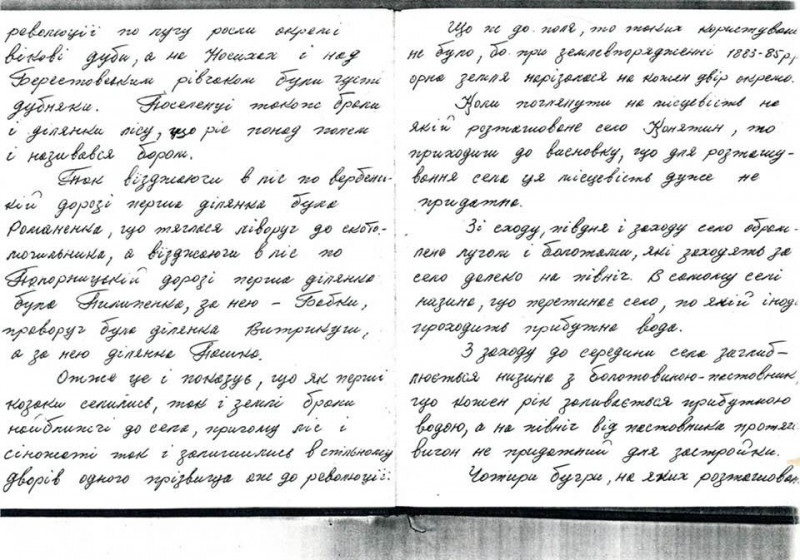 революції по лугу росли окремі
вікові дуби, а на Носихах і над
Берестовським рівчаком були густі
дубняки. Поселенці також брали
і ділянки лісу, що ріс понад полем
і називався бором.
Так візджаючи в ліс по вербени-
кій дорозі перша ділянка була
Романенка, що тяглася ліворуч до ското-
мочильника, а візджаючи в ліс по
Папорницькій дорозі перша ділянка
була Пилипенка, за нею - Бабки,
праворуч була ділянка Витрикуш,
а за нею ділянка Пашка.
Отже це і показує, що як перші
козаки селились, так і землі брали
найближчі до села, причому ліс і
сіножаті так і залишились в спільному
дворів одного прізвища аж до революції.
Що ж до поля, то таких користувань
не було, бо при землевпорядженні 1883-85р,
орна земля нарізалася на кожен двір окремо.
Коли поглянути на місцевість на
якій розташоване село Конятин, то
приходиш до висновку, що для розташу-
вання села ця місцевість дуже не
придатна.
Зі сходу, півдня і заходу село обрам-
лено лугом і болотами, які заходять за
село далеко на північ. В самому селі
низина, що перетинає село, по якій іноді
проходить прибутна вода.
З заходу до середини села заглиб-
люється низина з болотовиною-паставник,
що кожен рік заливається прибутною
водою, а на північ від паставника протяг
вигон не придатний для застройки.
Чотири бугри, на яких розташован